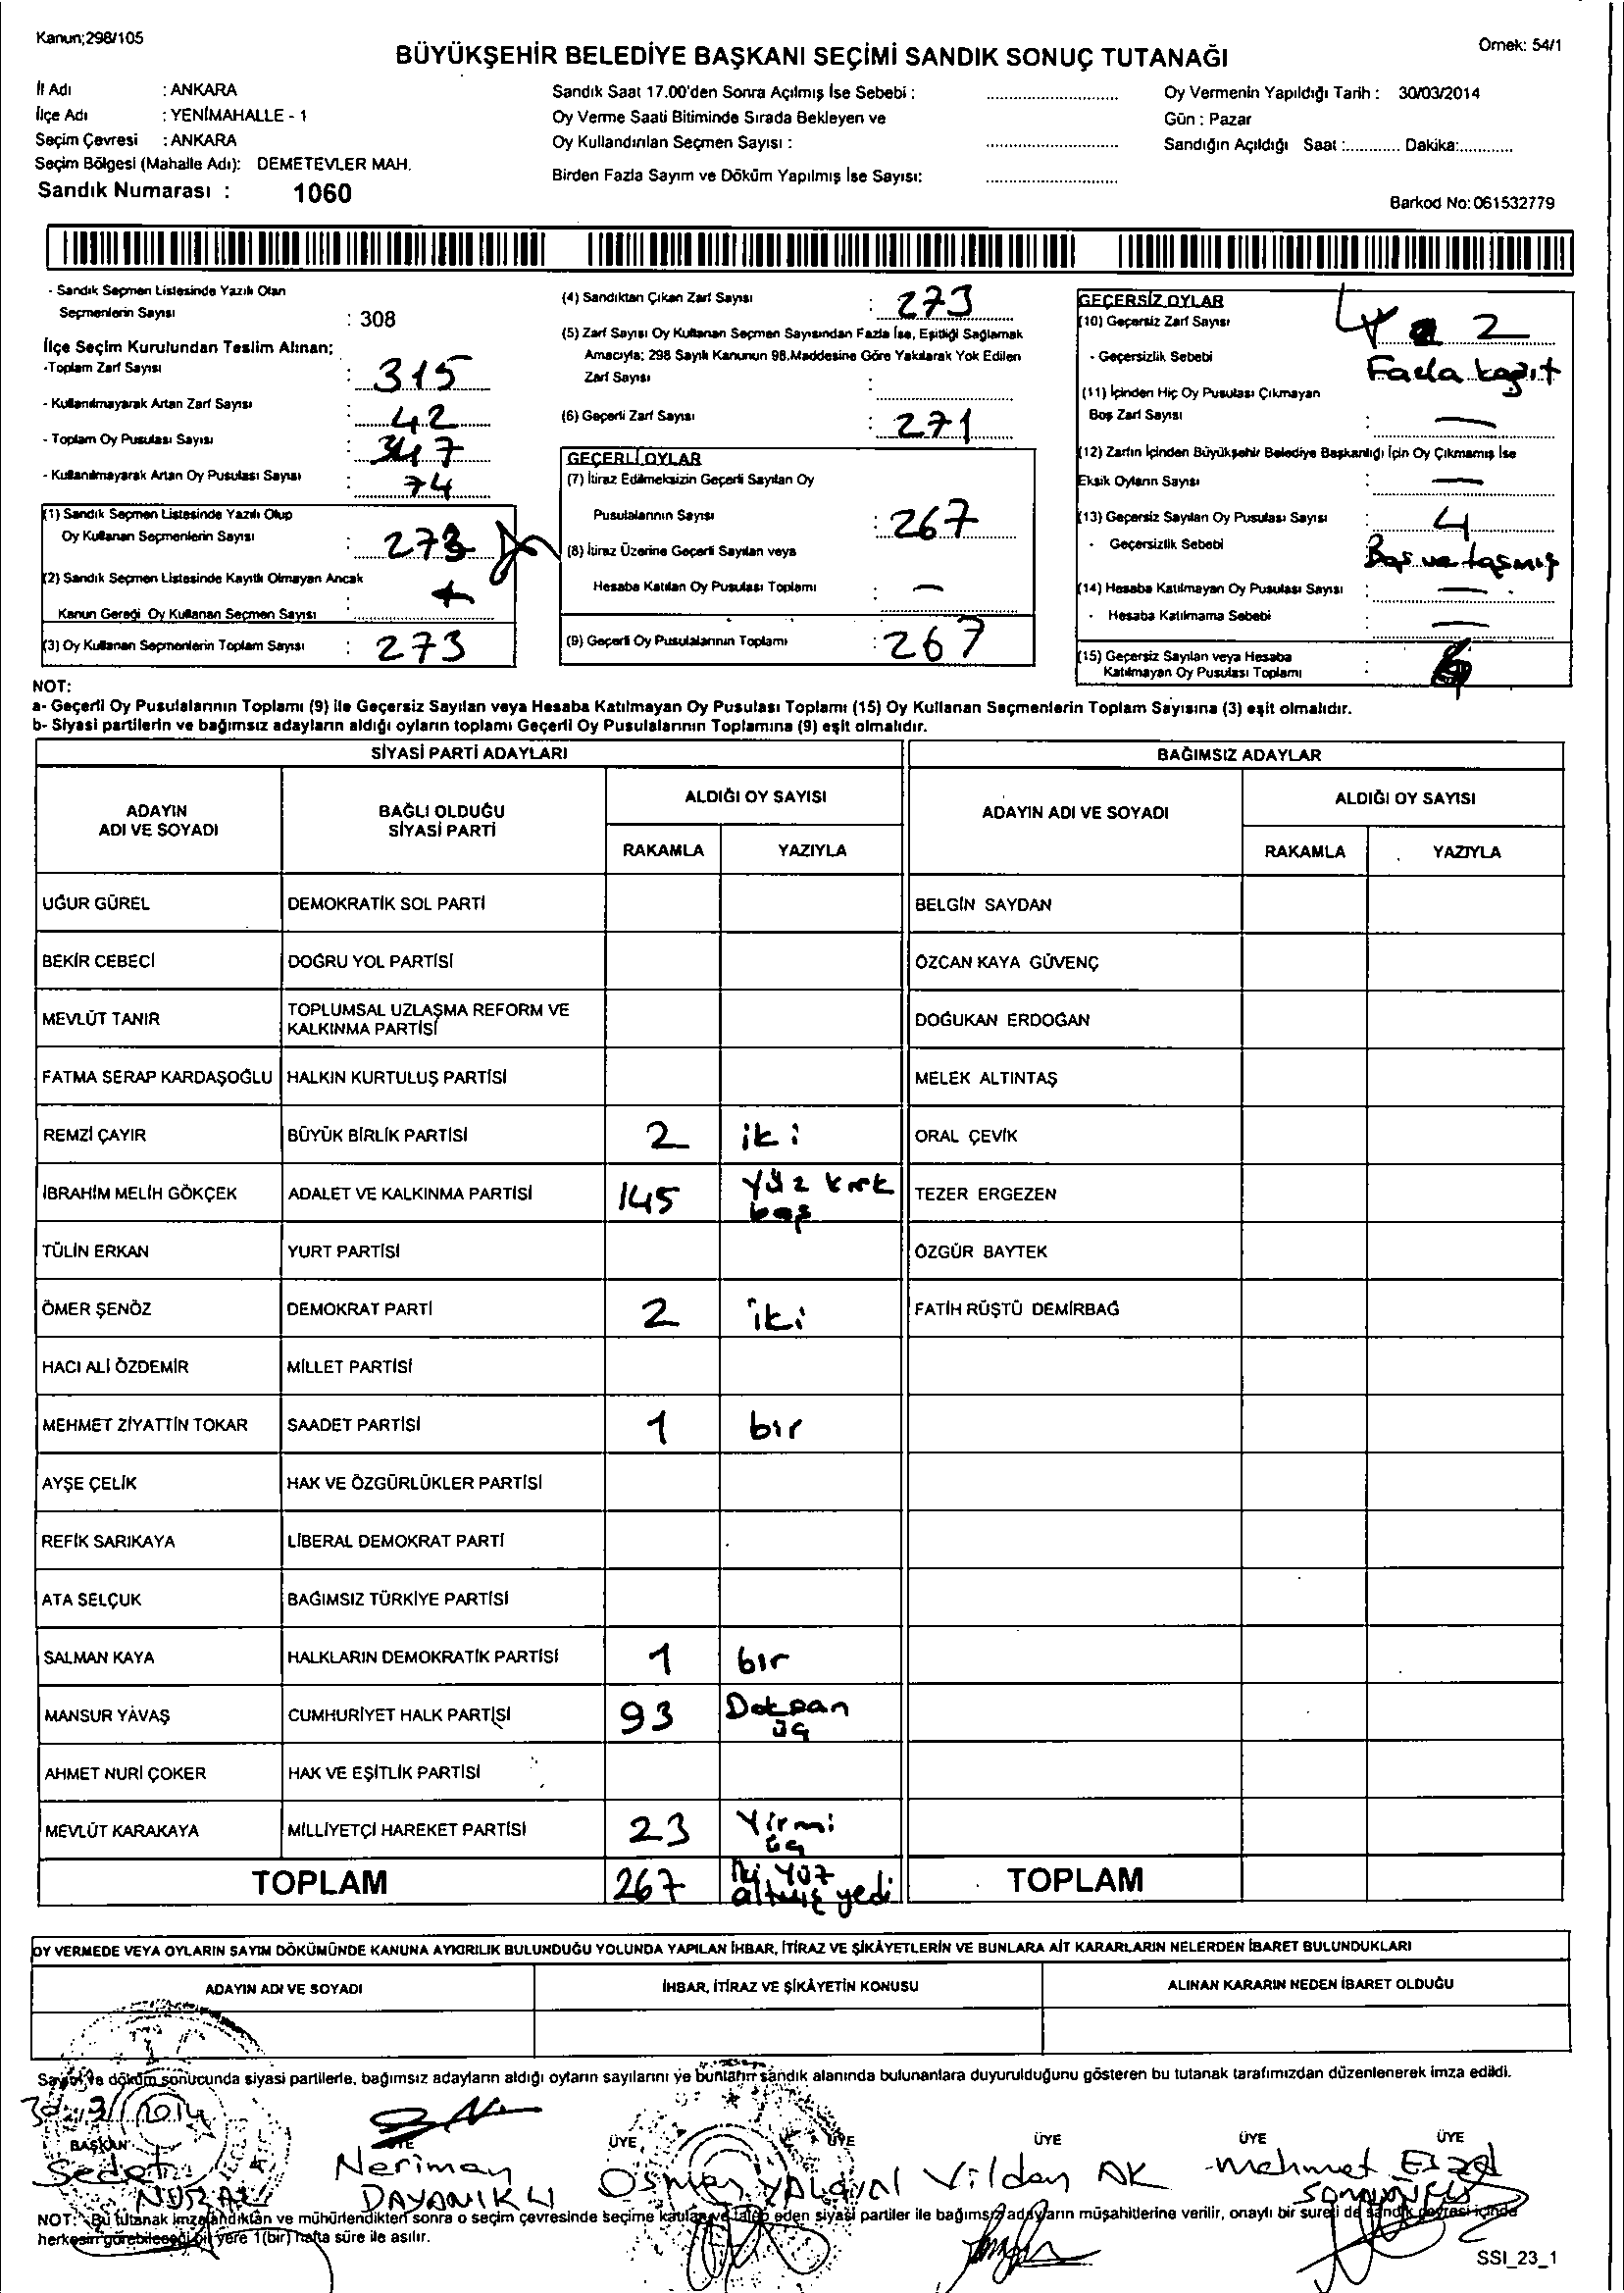 Kanun;298/105
Örnek: 54/1
BÜYÜKŞEHİR BELEDİYE BAŞKANI SEÇİMİ SANDIK SONUÇ TUTANAĞI
İl Adı : ANKARA
İlçe Adı : YENİMAHALLE - 1
Seçim Çevresi : ANKARA
Seçim Bölgesi (Mahalle Adı): DEMETEVLER MAH.
Sandık Numarası : 1060
Sandık Saat 17.00'den Sonra Açılmış İse Sebebi :
Oy Verme Saati Bitiminde Sırada Bekleyen ve
Oy Kullandırılan Seçmen Sayısı :
Birden Fazla Sayım ve Döküm Yapılmış İse Sayısı:
Oy Vermenin Yapıldığı Tarih : 30/03/2014
Gün : Pazar
Sandığın Açıldığı Saat :............ Dakika:............
Barkod No: 061532779
- Sandık Seçmen Listesinde Yazılı Olan
Seçmenlerin Sayısı : 308
İlçe Seçim Kurulundan Teslim Alınan;
-Toplam Zarf Sayısı : 315
- Kullanılmayarak Artan Zarf Sayısı : 42
- Toplam Oy Pusulası Sayısı : 347
- Kullanılmayarak Artan Oy Pusulası Sayısı : 74
(1) Sandık Seçmen Listesinde Yazılı Olup
Oy Kullanan Seçmenlerin Sayısı : 273
(2) Sandık Seçmen Listesinde Kayıtlı Olmayan Ancak
Kanun Gereği Oy Kullanan Seçmen Sayısı :
(3) Oy Kullanan Seçmenlerin Toplam Sayısı : 273
(4) Sandıktan Çıkan Zarf Sayısı : 273
(5) Zarf Sayısı Oy Kullanan Seçmen Sayısından Fazla İse, Eşitliği Sağlamak
Amacıyla; 298 Sayılı Kanunun 98.Maddesine Göre Yakılarak Yok Edilen
Zarf Sayısı :
(6) Geçerli Zarf Sayısı : 271
GEÇERLİ OYLAR
(7) İtiraz Edilmeksizin Geçerli Sayılan Oy
Pusulalarının Sayısı : 267
(8) İtiraz Üzerine Geçerli Sayılan veya
Hesaba Katılan Oy Pusulası Toplamı : —
(9) Geçerli Oy Pusulalarının Toplamı : 267
GEÇERSİZ OYLAR
(10) Geçersiz Zarf Sayısı : 2
- Geçersizlik Sebebi Fazla kağıt
(11) İçinden Hiç Oy Pusulası Çıkmayan
Boş Zarf Sayısı : —
(12) Zarfın İçinden Büyükşehir Belediye Başkanlığı İçin Oy Çıkmamış İse
Eksik Oyların Sayısı : —
(13) Geçersiz Sayılan Oy Pusulası Sayısı : 4
- Geçersizlik Sebebi Boş ve taşmış
(14) Hesaba Katılmayan Oy Pusulası Sayısı : —
- Hesaba Katılmama Sebebi : —
(15) Geçersiz Sayılan veya Hesaba
Katılmayan Oy Pusulası Toplamı :
NOT:
a- Geçerli Oy Pusulalarının Toplamı (9) ile Geçersiz Sayılan veya Hesaba Katılmayan Oy Pusulası Toplamı (15) Oy Kullanan Seçmenlerin Toplam Sayısına (3) eşit olmalıdır.
b- Siyasi partilerin ve bağımsız adayların aldığı oyların toplamı Geçerli Oy Pusulalarının Toplamına (9) eşit olmalıdır.
SİYASİ PARTİ ADAYLARI BAĞIMSIZ ADAYLAR
ADAYIN ADI VE SOYADI BAĞLI OLDUĞU SİYASİ PARTİ ALDIĞI OY SAYISI ADAYIN ADI VE SOYADI ALDIĞI OY SAYISI
RAKAMLA YAZIYLA RAKAMLA YAZIYLA
UĞUR GÜREL DEMOKRATİK SOL PARTİ BELGİN SAYDAN
BEKİR CEBECİ DOĞRU YOL PARTİSİ ÖZCAN KAYA GÜVENÇ
MEVLÜT TANIR TOPLUMSAL UZLAŞMA REFORM VE KALKINMA PARTİSİ DOĞUKAN ERDOĞAN
FATMA SERAP KARDAŞOĞLU HALKIN KURTULUŞ PARTİSİ MELEK ALTINTAŞ
REMZİ ÇAYIR BÜYÜK BİRLİK PARTİSİ 2 iki ORAL ÇEVİK
İBRAHİM MELİH GÖKÇEK ADALET VE KALKINMA PARTİSİ 145 yüz kırk beş TEZER ERGEZEN
TÜLİN ERKAN YURT PARTİSİ ÖZGÜR BAYTEK
ÖMER ŞENÖZ DEMOKRAT PARTİ 2 iki FATİH RÜŞTÜ DEMİRBAĞ
HACI ALİ ÖZDEMİR MİLLET PARTİSİ
MEHMET ZİYATTİN TOKAR SAADET PARTİSİ 1 bir
AYŞE ÇELİK HAK VE ÖZGÜRLÜKLER PARTİSİ
REFİK SARIKAYA LİBERAL DEMOKRAT PARTİ
ATA SELÇUK BAĞIMSIZ TÜRKİYE PARTİSİ
SALMAN KAYA HALKLARIN DEMOKRATİK PARTİSİ 1 bir
MANSUR YAVAŞ CUMHURİYET HALK PARTİSİ 93 Doksan üç
AHMET NURİ ÇOKER HAK VE EŞİTLİK PARTİSİ
MEVLÜT KARAKAYA MİLLİYETÇİ HAREKET PARTİSİ 23 Yirmi üç
TOPLAM 267 İki yüz altmış yedi TOPLAM
OY VERMEDE VEYA OYLARIN SAYIM DÖKÜMÜNDE KANUNA AYKIRILIK BULUNDUĞU YOLUNDA YAPILAN İHBAR, İTİRAZ VE ŞİKÂYETLERİN VE BUNLARA AİT KARARLARIN NELERDEN İBARET BULUNDUKLARI
ADAYIN ADI VE SOYADI İHBAR, İTİRAZ VE ŞİKÂYETİN KONUSU ALINAN KARARIN NEDEN İBARET OLDUĞU
Sayım ve döküm sonucunda siyasi partilerle, bağımsız adayların aldığı oyların sayılarını ve bunların sandık alanında bulunanlara duyurulduğunu gösteren bu tutanak tarafımızdan düzenlenerek imza edildi.
BAŞKAN ÜYE ÜYE ÜYE ÜYE ÜYE ÜYE
Neriman DAYANIKLI Osman Vildan AK Mehmet
NOT: Bu tutanak imzalandıktan ve mühürlendikten sonra o seçim çevresinde seçime katılan ve talep eden siyasi partiler ile bağımsız adayların müşahitlerine verilir, onaylı bir sureti de sandık çevresi içinde
herkesin görebileceği bir yere 1(bir) hafta süre ile asılır.
SSI_23_1